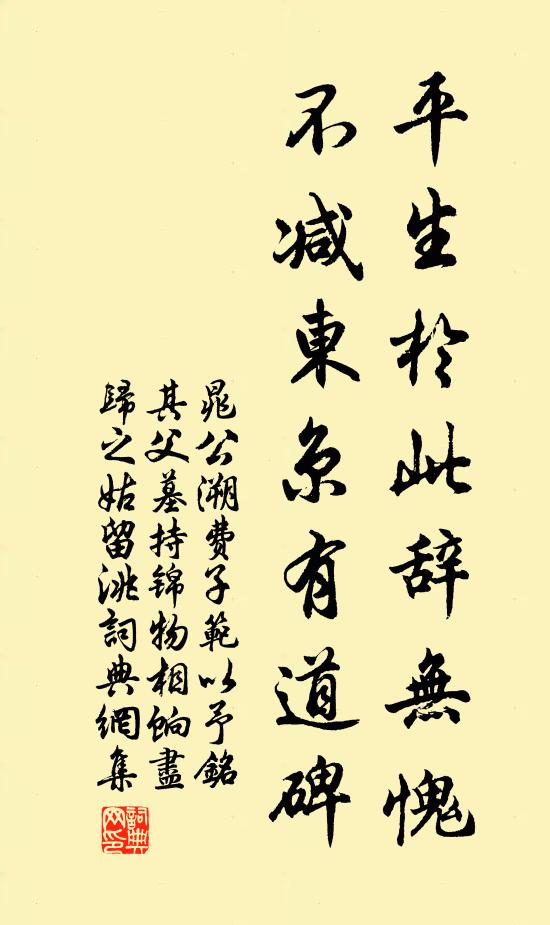 平生於此辞無愧
不减東京有道碑
晁公溯費子範以予銘
其父墓持錦物相餉盡
歸之姑留洮詞典網集
詞典网印